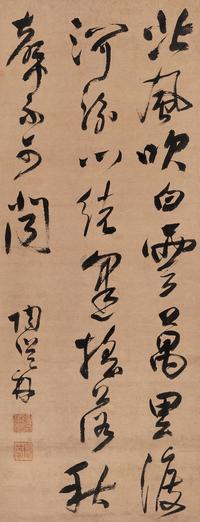 北風吹白雲萬里渡
河汾心緒逢搖落秋
聲不可聞